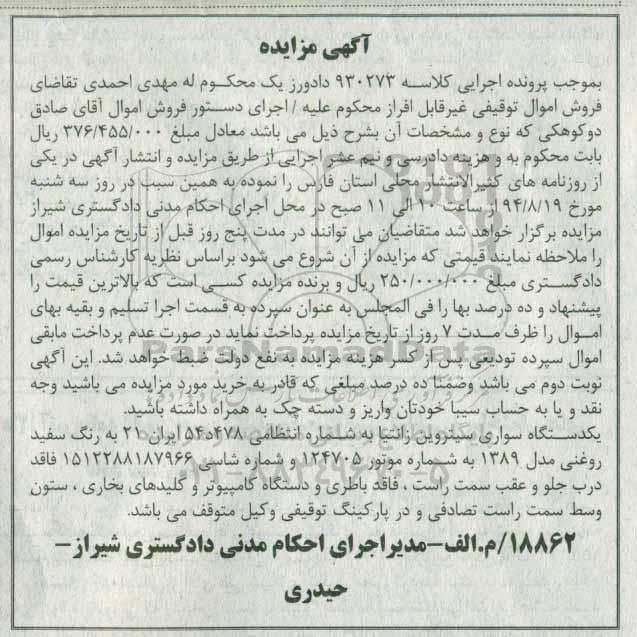 آگهی مزایده
بموجب پرونده اجرایی کلاسه ۹۳۰۲۷۳ دادورز یک محکوم له مهدی احمدی تقاضای
فروش اموال توقیفی غیرقابل افراز محکوم علیه / اجرای دستور فروش اموال آقای صادق
دوکوهکی که نوع و مشخصات آن بشرح ذیل می باشد معادل مبلغ ۳۷۶/۴۵۵/۰۰۰ ریال
بابت محکوم به و هزینه دادرسی و نیم عشر اجرایی از طریق مزایده و انتشار آگهی در یکی
از روزنامه های کثیرالانتشار محلی استان فارس را نموده به همین سبب در روز سه شنبه
مورخ ۹۴/۸/۱۹ از ساعت ۱۰ الی ۱۱ صبح در محل اجرای احکام مدنی دادگستری شیراز
مزایده برگزار خواهد شد متقاضیان می توانند در مدت پنج روز قبل از تاریخ مزایده اموال
را ملاحظه نمایند قیمتی که مزایده از آن شروع می شود براساس نظریه کارشناس رسمی
دادگستری مبلغ ۲۵۰/۰۰۰/۰۰۰ ریال و برنده مزایده کسی است که بالاترین قیمت را
پیشنهاد و ده درصد بها را فی المجلس به عنوان سپرده به قسمت اجرا تسلیم و بقیه بهای
اموال را ظرف مدت ۷ روز از تاریخ مزایده پرداخت نماید در صورت عدم پرداخت مابقی
اموال سپرده تودیعی پس از کسر هزینه مزایده به نفع دولت ضبط خواهد شد. این آگهی
نوبت دوم می باشد وضمنا ده درصد مبلغی که قادر به خرید مورد مزایده می باشید وجه
نقد و یا به حساب سیبا خودتان واریز و دسته چک به همراه داشته باشید.
یکدستگاه سواری سیتروین زانتیا به شماره انتظامی ۴۷۸د۵۴ ایران ۲۱ به رنگ سفید
روغنی مدل ۱۳۸۹ به شماره موتور ۱۲۴۷۰۵ و شماره شاسی ۱۵۱۲۲۸۸۱۸۷۹۶۶ فاقد
درب جلو و عقب سمت راست ، فاقد باطری و دستگاه کامپیوتر و کلیدهای بخاری ، ستون
وسط سمت راست تصادفی و در پارکینگ توقیفی وکیل متوقف می باشد.
۱۸۸۶۲/م.الف-مدیراجرای احکام مدنی دادگستری شیراز-
حیدری
ParsNamadData